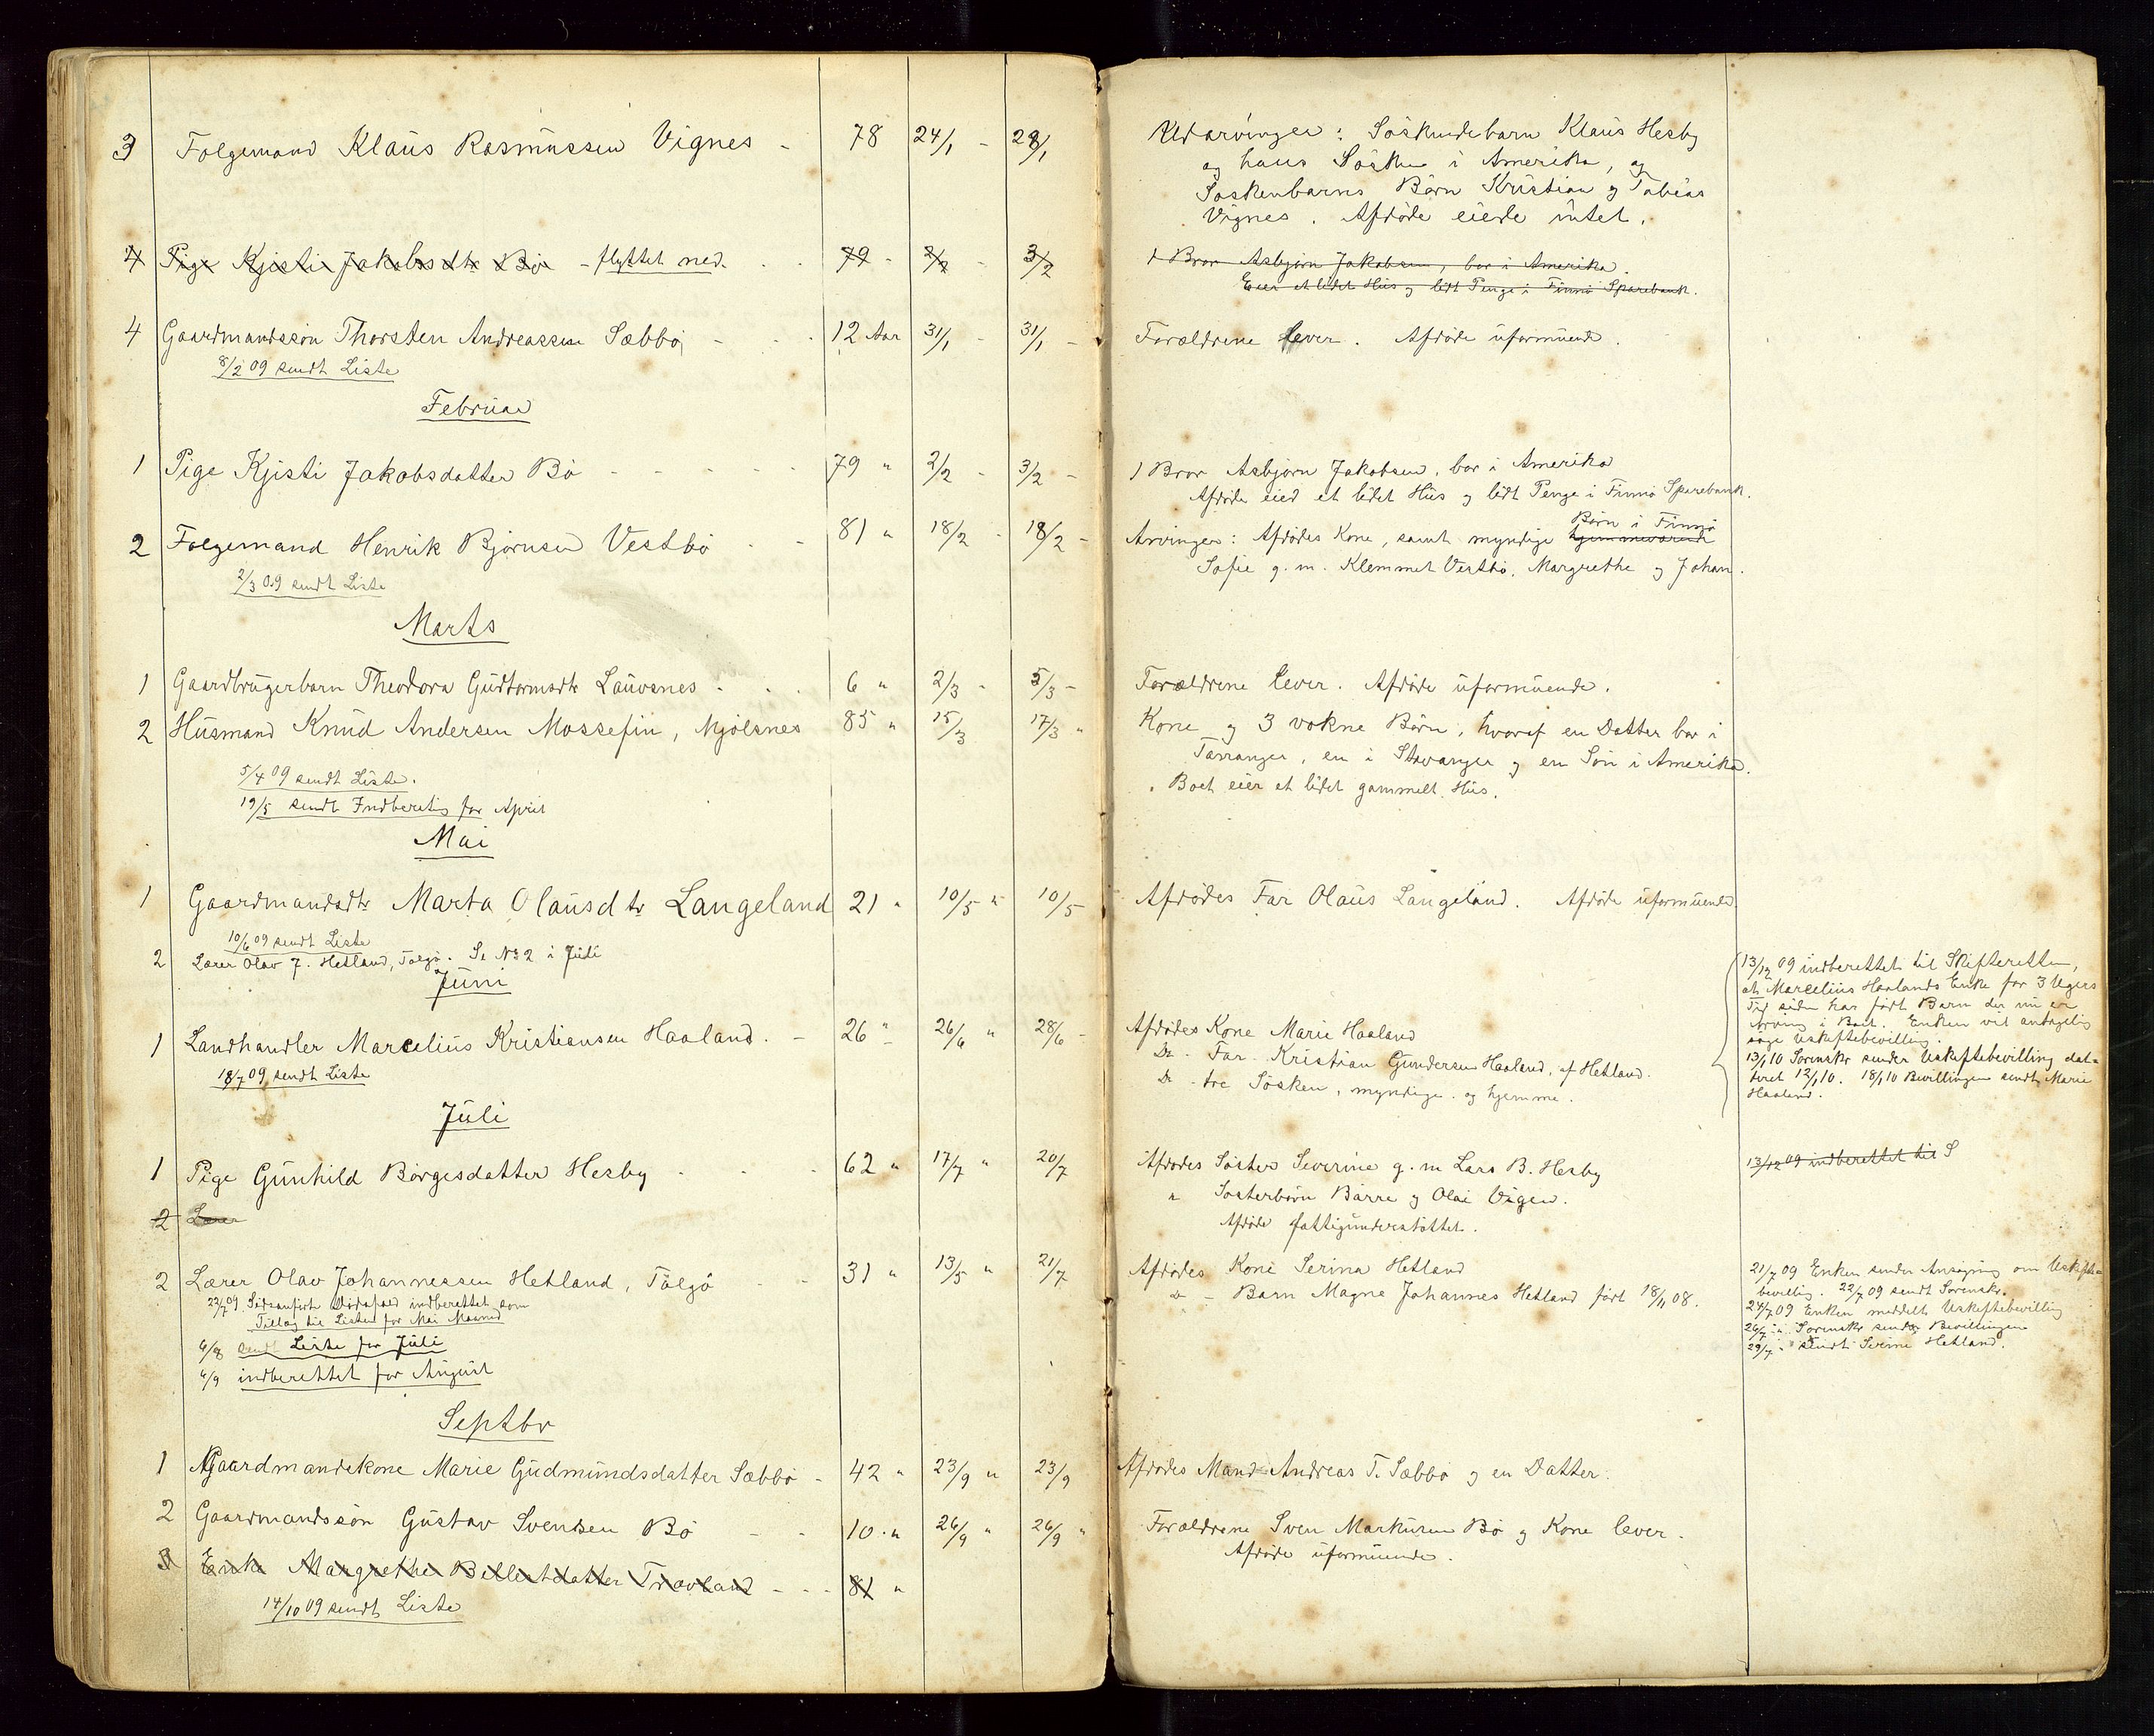 3 Folgemand Klaus Rasmussen Vignes - 78 24/1 - 28/1
Udarvinger: Söskendebarn Klaus Hesby
og hans Sösken i Amerika, og
Söskenbarns Börn Kristian og Tobias
Vignes. Afdöde eiede intet.
4 Pige Kjisti Jakobsdtr Bö - flyttet ned. 79 - 2/2 - 3/2
1 Bror Asbjörn Jakobsen, bor i Amerika.
Eier et lidet Hus og lidt Penge i Finnö Sparebank.
4 Gaardmandssön Thorsten Andreassen Sæbbö - 12 Aar 31/1 - 31/1 -
Forældrene lever. Afdöde uformuende.
8/2 09 sendt Liste
Februar
1 Pige Kjisti Jakobsdatter Bö - - - - 79 " 2/2 - 3/2 -
1 Bror Asbjörn Jakobsen, bor i Amerika
Afdöde eied et lidet Hus og lidt Penge i Finnö Sparebank.
2 Folgemand Henrik Bjørnsen Vestbö - - 81 " 18/2 - 18/2 -
Börn i Finnö
Arvinger: Afdödes Kone, samt myndige hjemmeværende
Sofie g. m. Klemmet Vestbö, Margrethe og Johan.
2/3 09 sendt Liste
Marts
1 Gaardbrugerbarn Theodora Gudtormsdtr Lauvsnes - 6 " 2/3 - 5/3 -
Forældrene lever. Afdöde uformuende.
2 Husmand Knud Andersen Mossefin, Mjölsnes 85 " 15/3 17/3 "
Kone og 3 voksne Börn, hvoraf en Datter bor i
Tarranger, en i Stavanger og en Sön i Amerika.
Boet eier et lidet gammelt Hus.
5/4 09 sendt Liste.
19/5 sendt Indberetng for April
Mai
1 Gaardmandsdtr Marta Olausdtr Langeland 21 " 10/5 " 10/5
Afdödes Far Olaus Langeland. Afdöde uformuende.
10/6 09 sendt Liste
2 Lærer Olav J. Hetland, Talgö. Se No 2 i Juli
Juni
1 Landhandler Marcelius Kristiansen Haaland. - 26 " 26/6 " 28/6 -
Afdödes Kone Marie Haaland
Do - Far - Kristian Gundersen Haaland, af Hetland.
Do - tre Sösken, myndige og hjemme.
13/12 09 indberettet til Skifteretten,
at Marcelius Haalands Enke for 3 Ugers
Tid siden har födt Barn der nu er
Arving i Boet. Enken vil antagelig
söge Uskiftebevilling.
13/1 10 Sorenskr sender Uskiftebevilling dat=
teret 12/1 10. 18/1 10 Bevillingen sendt Marie
Haaland.
18/7 09 sendt Liste
Juli
1 Pige Gunhild Börgesdatter Hesby - - - 62 " 17/7 " 20/7
Afdödes Söster Severine g. m Lars B. Hesby
" Sösterbörn Börre og Olai Vigen.
Afdöde fattigunderstöttet.
13/12 09 indberettet til S
2 Lærer
2 Lærer Olav Johannessen Hetland, Talgö - - 31 " 13/5 " 21/7
Afdödes Kone Serina Hetland
" - Barn Magne Johannes Hetland födt 18/11 08.
21/7 09 Enken sender Ansögning om Uskifte=
bevilling. 22/7 09 sendt Sorenskr.
24/7 09 Enken meddelt Uskiftebevilling
26/7 " Sorenskr sender Bevillingen
29/7 " sendt Serine Hetland.
22/7 09 Sidstanförte Dödsfald indberettet som
Tillæg til Listen for Mai Maaned
6/8 sendt Liste for Juli
4/9 indberettet for August
Septbr
1 Gaardmandskone Marie Gudmundsdatter Sæbbö - 42 " 23/9 " 23/9
Afdödes Mand Andreas T. Sæbbö og en Datter.
2 Gaardmandssön Gustav Svendsen Bö - - 10 " 26/9 " 26/9 "
Forældrene Sven Markusen Bö og Kone lever.
Afdöde uformuende.
3 Enke Margrethe Bellestdatter Travland - - - 81 "
14/10 09 sendt Liste